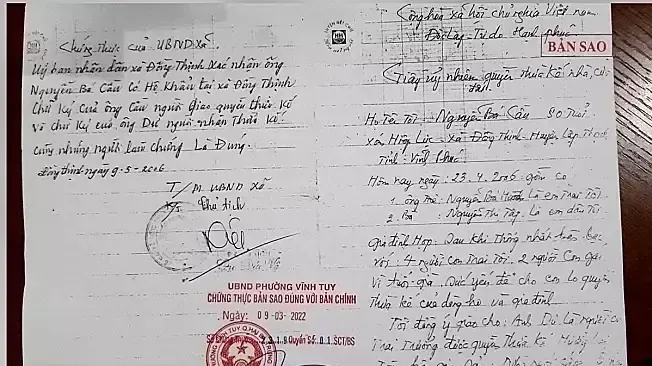 Chứng thực của UBND Xã
Uỷ ban nhân dân xã Đồng Thịnh xác nhận ông
Nguyễn Bá Cầu Có Hộ Khẩu tại xã Đồng Thịnh
Chữ Ký Của ông Cầu người Giao quyền thừa Kế
và chữ Ký của ông Dư người nhận Thừa Kế
cùng những người làm chứng Là Đúng.
Đồng thịnh ngày 9-5-2006
T/M UBND Xã
Chủ tịch
UBND PHƯỜNG VĨNH TUY
CHỨNG THỰC BẢN SAO ĐÚNG VỚI BẢN CHÍNH
Ngày: 09-03-2022
Quyển Số: 01.SCT/BS
Cộng hoà xã hội chủ nghĩa Việt nam
Độc lập - Tự do - Hạnh phúc
BẢN SAO
Giấy uỷ nhiệm quyền thừa kế nhà, của
Họ Tên Tôi - Nguyễn Bá Cầu 80 Tuổi
Xóm Hiệp Lực - Xã Đồng Thịnh - Huyện Lập Thạch
Tỉnh - Vĩnh Phúc
Hôm nay ngày: 23.4.2006 gồm có
1. ông : Nguyễn Bá Là em Trai Tôi
2. Bà : Nguyễn Thị Là em dâu Tôi
Gia đình Họp: Sau khi Thống nhất
với: 4 người con Trai Tôi. 2 người Con gái
Vì tuổi già Sức yếu để cho con lo quyền
Thừa kế của dòng họ và gia đình
Tôi đồng ý giao cho: Anh Dư Là người con
Trai Trưởng được quyền Thừa Kế